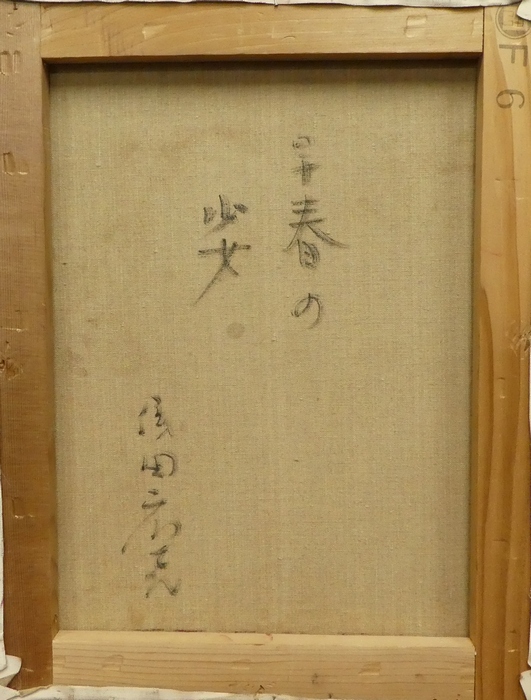 早春の
少女
田
F6